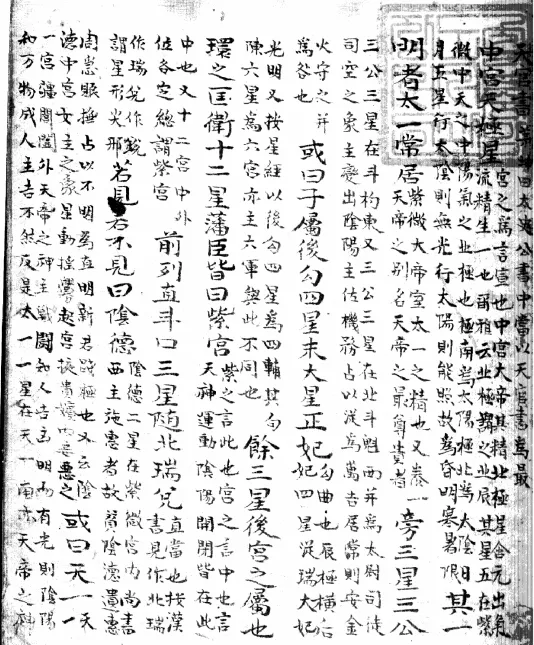 曰太史公書中當以天官書爲最
中宮天極星宮之爲言宣也中宮大帝其精北極星含元出氣
流精生一也爾雅云北極謂之北辰其星五在紫
微中天之中陽氣之北極也極南爲太陽極北爲太陰日
月五星行太陰則無光行太陽則能照故爲昏明寒暑限其一
明者太一常居紫微大帝室太一之精也又泰一
天帝之別名天帝之最尊貴者旁三星三公
三公三星在斗杓東又三公三星在北斗魁西并爲太尉司徒
司空之象主變出陰陽主佐機務占以徙爲吉居常則安金
火守之并
爲咎也或曰子屬後勾四星末大星正妃勾曲也辰極橫后
妃四星從瑞大妃
光明又按星經以後勾四星爲四輔其勾
陳六星爲六宮亦主六軍與此不同也餘三星後宮之屬也
環之匡衛十二星藩臣皆曰紫宮紫之言此也宮之言中也言
天神運動陰陽開閉皆在此
中也又十二宮中外
位各定總謂紫宮前列直斗口三星隨北瑞兌直當也按漢
書見作北瑞
作瑞兌作銳
謂星形尖邪若見若不見曰陰德陰德二星在紫微宮內尚書
西主施惠者故贊陰德遺惠
周急賑撫占以不明爲宜明新君踐極也又云陰
德中宮女主之象星動搖釁起宮掖貴嬪內妾惡之或曰天一天
一
一宮疆閶闔外天帝之神主戰鬪知人吉凶明而有光則陰陽
和万物成人主吉不然反是太一一星在天一南亦天帝之神